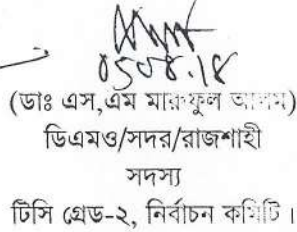 05.08.18
(ডাঃ এস,এম মারুফুল আলম)
ডিএমও/সদর/রাজশাহী
সদস্য
টিসি গ্রেড-২, নির্বাচন কমিটি।